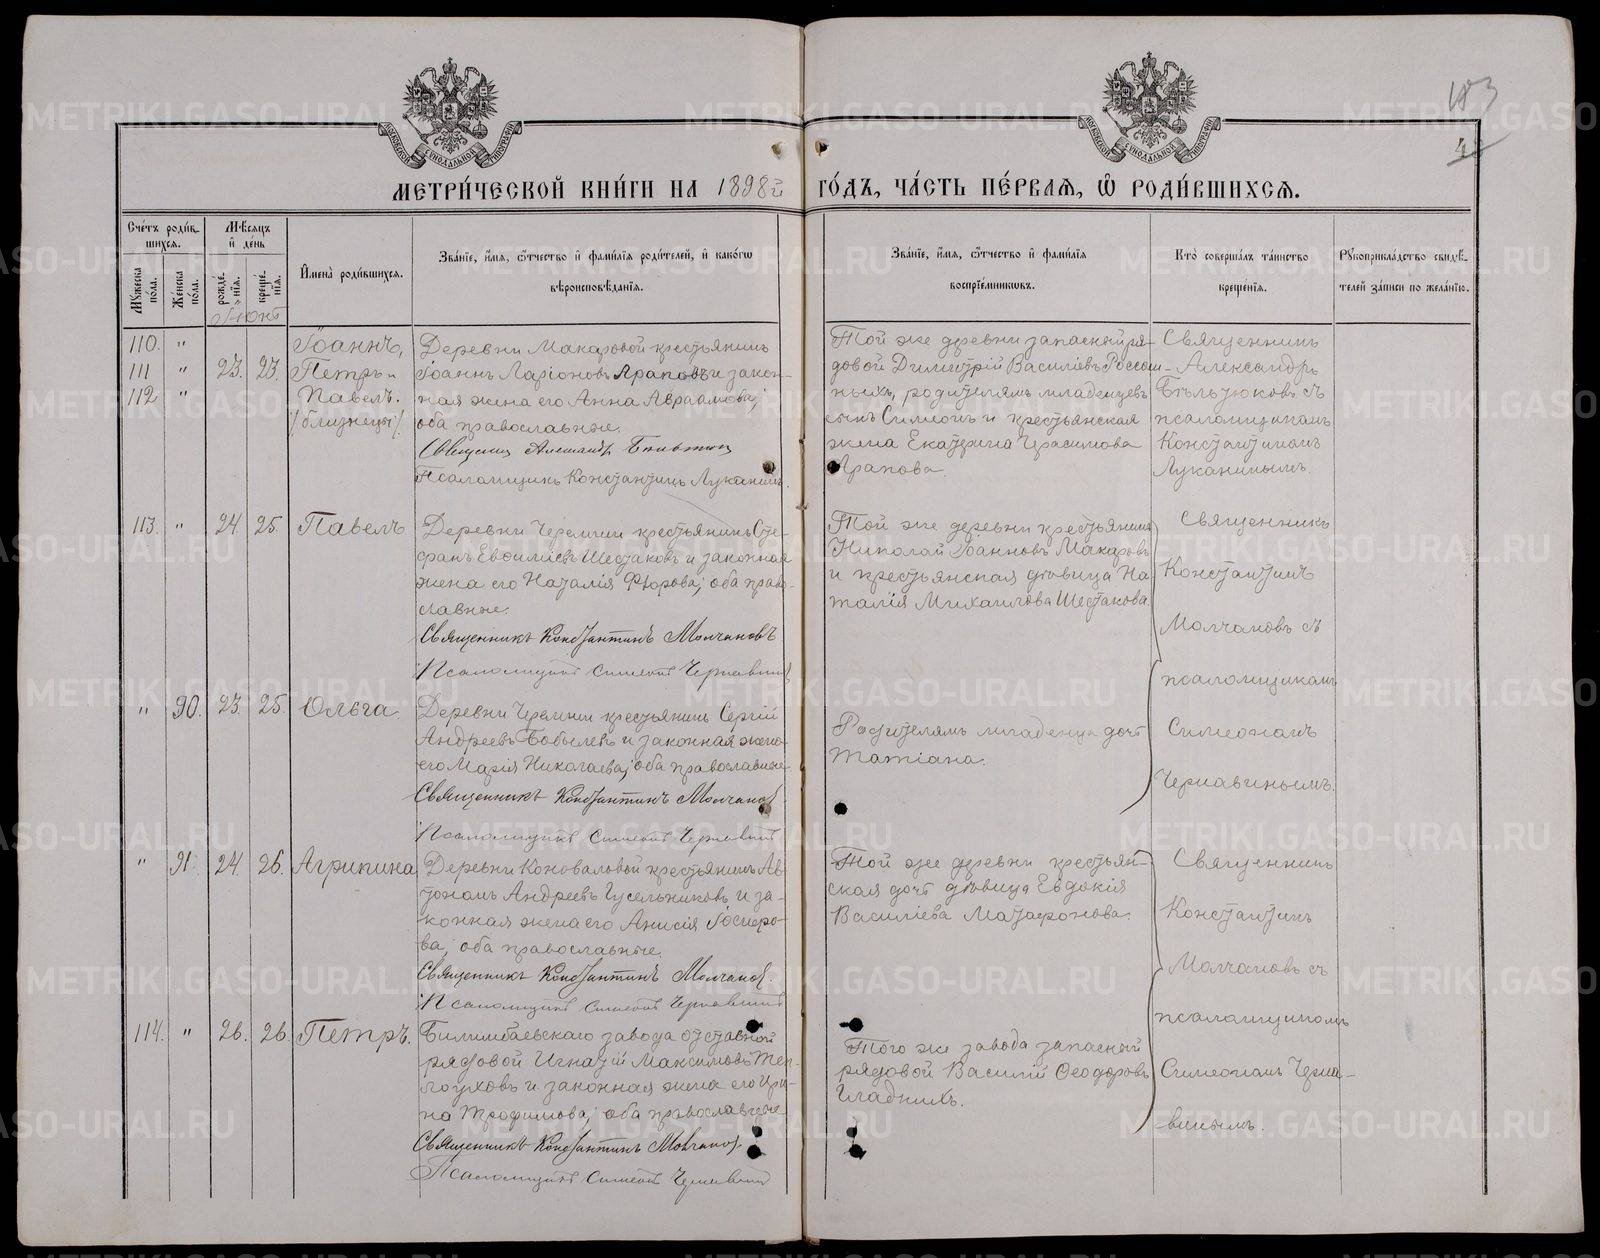 183
4
МОСКОВСКОЙ СѴНОДАЛЬНОЙ ТИПОГРАФІИ
МОСКОВСКОЙ СѴНОДАЛЬНОЙ ТИПОГРАФІИ
МЕТРИ́ЧЕСКОЙ КНИ́ГИ НА 1898й ГО́ДЪ, ЧА́СТЬ ПЕ́РВАЯ, Ѡ҆ РОДИ́ВШИХСЯ.
Сче́тъ роди́в-
шихся.
Мѣ́сяцъ
и҆ де́нь
Му́жеска по́ла.
Же́нска по́ла.
рожде́-нія.
креще́-нія.
И҆мена̀ роди́вшихся.
Зва́ніе, и҆́мя, ѻ҆́тчество и҆ фами́лія роди́телей, и҆ како́гѡ
вѣроисповѣ́данія.
Зва́ніе, и҆́мя, ѻ҆́тчество и҆ фами́лія
воспріе́мниковъ.
Кто̀ соверша́лъ та́инство
креще́нія.
Рꙋкоприкла́дство свидѣ́-
телей за́писи по жела́нію.
Іюнь
110. "
111 " 23. 23.
112 "
Іоаннъ,
Петръ и
Павелъ.
/близнецы/.
Деревни Макаровой крестьянинъ
Іоаннъ Ларіоновъ Араповъ и закон-
ная жена его Анна Авраамова,
оба православные.
Священник Александр
Псаломщикъ Константинъ Луканинъ.
Той же деревни запасный ря-
довой Димитрій Василіевъ
родителямъ младенцевъ
сынъ Симеонъ и крестьянская
жена Екатерина Герасимова
Арапова.
Священникъ
Александръ
съ
псаломщикомъ
Константиномъ
Луканинымъ.
113. " 24 25. Павелъ
Деревни Черемши крестьянинъ Сте-
фанъ Евѳиміевъ Шестаковъ и законная
жена его Наталія Ѳ. оба право-
славные.
Священникъ Константинъ Молчановъ
Псаломщикъ Симеонъ Чернавинъ
Той же деревни крестьянинъ
Николай Іоанновъ Макаровъ
и крестьянская дѣвица На-
талія Михаилова Шестакова.
Священникъ
Константинъ
Молчановъ съ
псаломщикомъ
Симеономъ
Чернавинымъ.
" 90. 23. 25. Ольга.
Деревни Черемши крестьянинъ Сергій
Андреевъ Бобылевъ и законная жена
его Марія Николаева, оба православные.
Священникъ Константинъ Молчанов.
Псаломщикъ Симеонъ Чернавинъ
Родителямъ младенца дочь
Татіана.
" 91. 24. 26. Агрипина
Деревни Коноваловой крестьянинъ Ав-
тономъ Андреевъ Гусельниковъ и за-
конная жена его Анисія
оба православные.
Священникъ Константинъ Молчанов.
Псаломщикъ Симеонъ Чернавинъ
Той же деревни крестьян-
ская дочь дѣвица Евдокія
Василіева Матафонова.
Священникъ
Константинъ
Молчановъ съ
псаломщикомъ
Симеономъ Черна-
винымъ.
114. " 26. 26. Петръ.
Билимбаевскаго завода отставной
рядовой Игнатій Максимовъ Теп-
лоуховъ и законная жена его Ири-
на Трофимова, оба православные
Священникъ Константинъ Молчанов.
Псаломщикъ Симеонъ Чернавинъ
Того же завода запасный
рядовой Василій Ѳеодоровъ
Гладкихъ.
METRIKI.GASO-URAL.RU